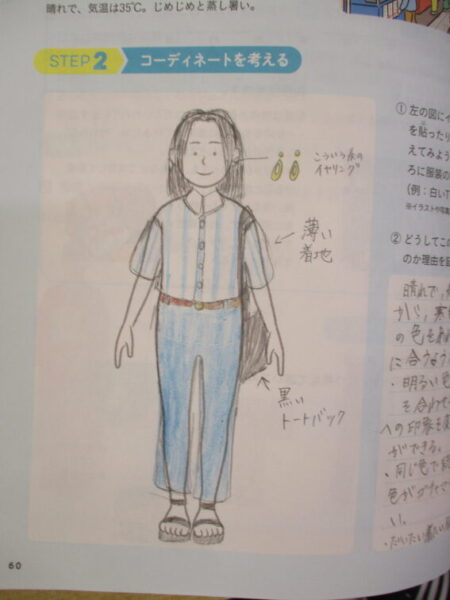 晴れで、気温は35℃。じめじめと蒸し暑い。
STEP 2 コーディネートを考える
こういう系の
イヤリング
薄い
着地
黒い
トートバック
① 左の図に
を貼ったり
えてみよう
ろに服装の
(例:白いT
※イラストや写真
② どうしてこの
のか理由を
晴れで、
の色を
に合うよう
・明るい色
を合わせ
への印象を
ができる。
・同じ色で
い。
60